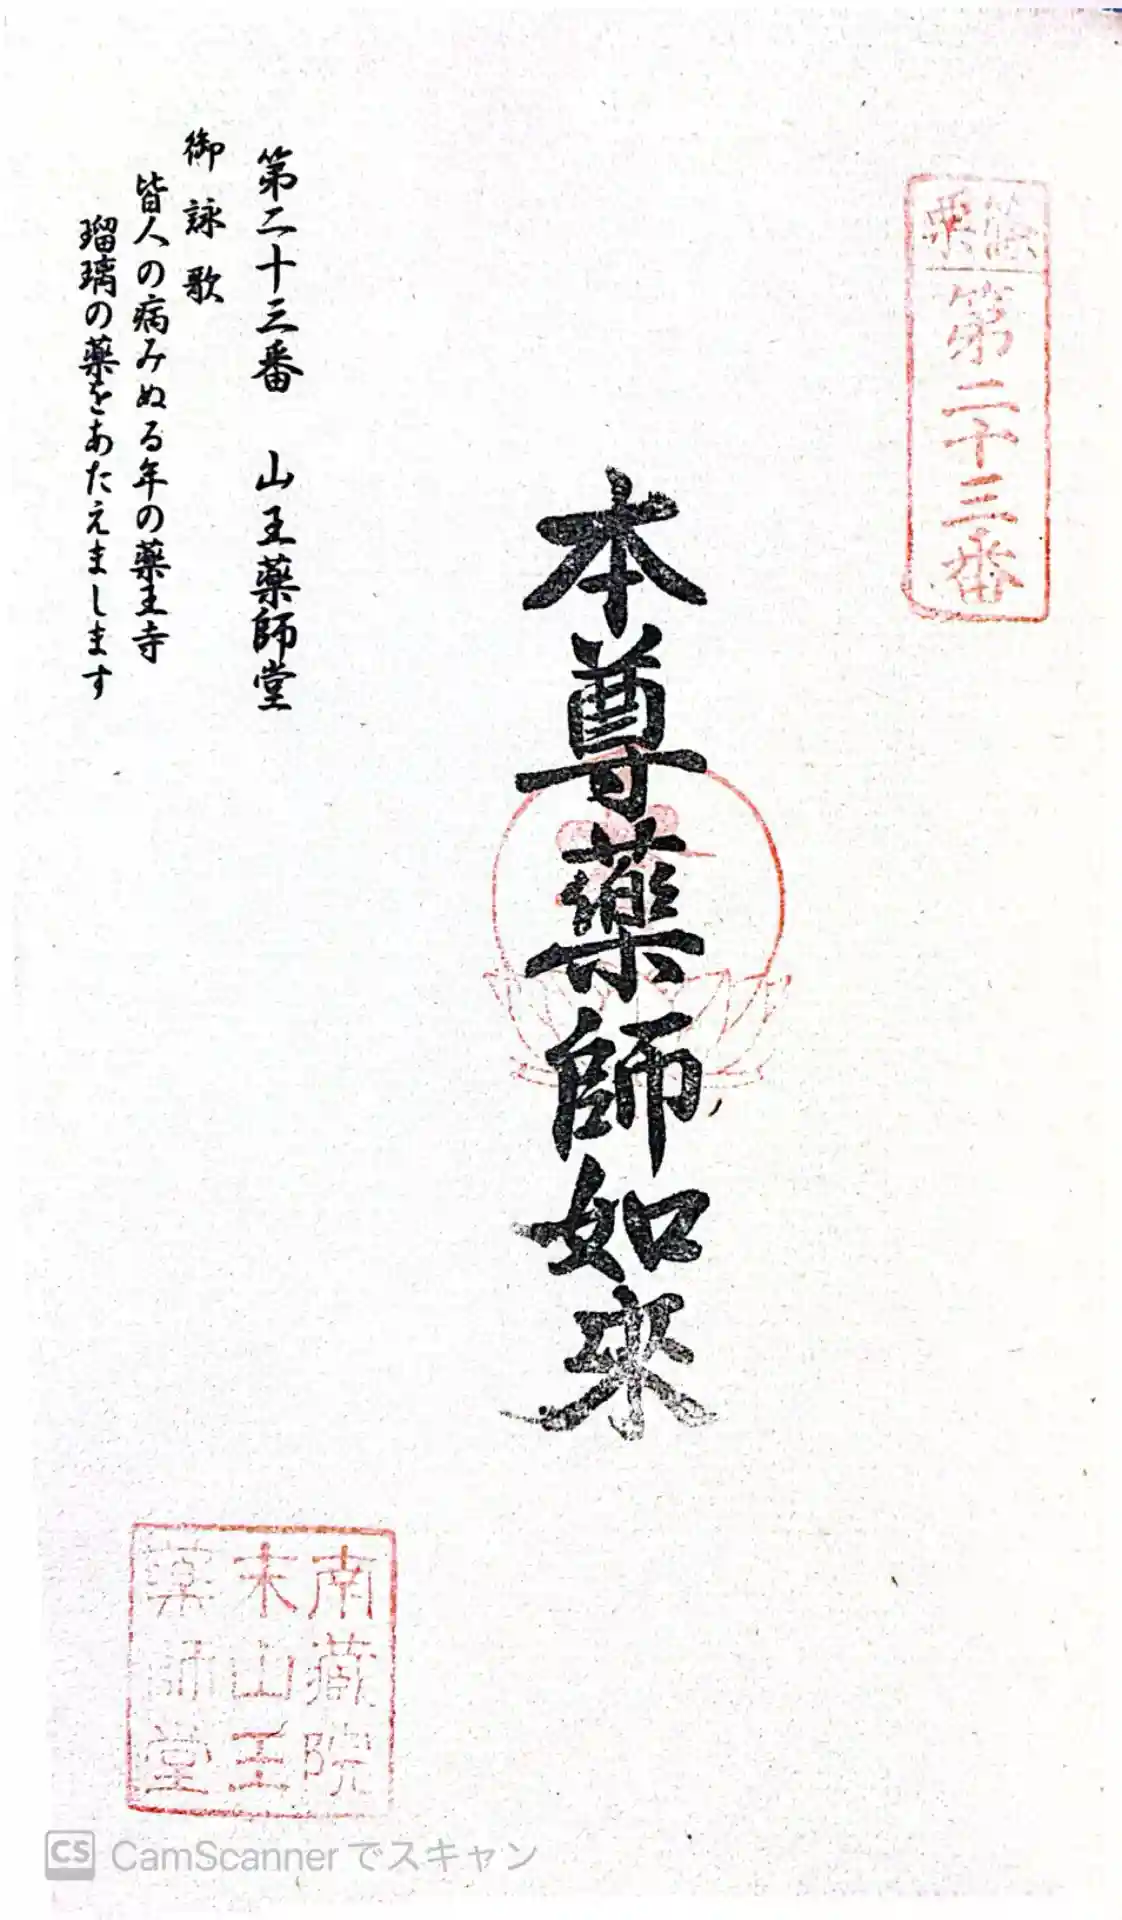 篠栗
第二十三番
本尊薬師如来
第二十三番　山王薬師堂
御詠歌
皆人の病みぬる年の薬王寺
瑠璃の薬をあたえまします
南蔵院
末山王
薬師堂
CS CamScannerでスキャン